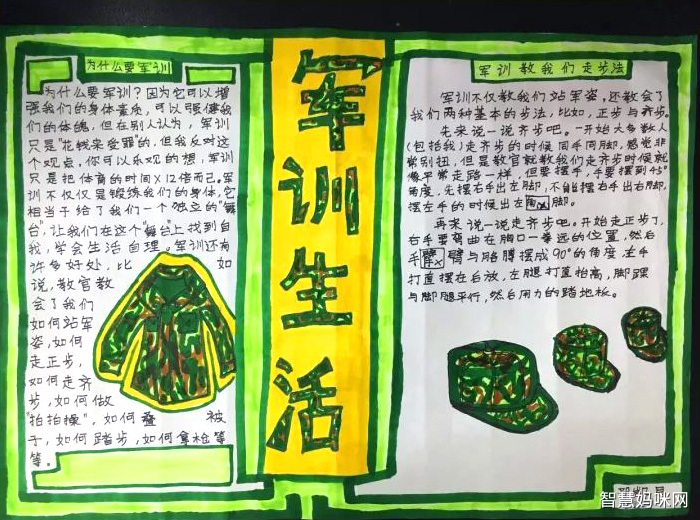 为什么要军训
为什么要军训？因为它可以增
强我们的身体素质，可以强健我
们的体魄，但在别人认为，军训
只是"花钱来受罪"的，但我反对这
个观点，你可以乐观的想，军训
只是把体育的时间X12倍而已。军
训不仅仅是锻炼我们的身体，它
相当于给了我们一个独立的"舞
台"，让我们在这个"舞台"上找到自
我，学会生活自理。军训还有
许多好处，比如
说，教官教
会了我们
如何站军
姿，如何
走正步，
如何走齐
步，如何做
"拍拍操"，如何叠被
子，如何踏步，如何拿枪等
等。
军训生活
军训教我们走步法
军训不仅教我们站军姿，还教会了
我们两种基本的步法，比如，正步与齐步。
先来说一说齐步吧。一开始大多数人
(包括我)走齐步的时候同手同脚，感觉非
常别扭，但是教官就教我们走齐步时候就
像平常走路一样，但要摆手，手要摆到45°
角度，先摆右手出左脚，不能摆右手出右脚，
摆左手的时候出左脚。
再来说一说走齐步吧。开始走正步了，
右手要弯曲在胸口一拳远的位置，然后
手臂与胳膊摆成90°的角度，左手
打直摆在后放，左腿打直抬高，脚踝
与脚腿平行，然后用力的踏地板。
智慧妈咪网